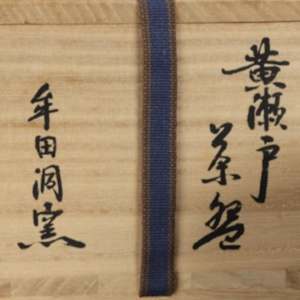 黄瀬戸
茶盌
牟田洞窯